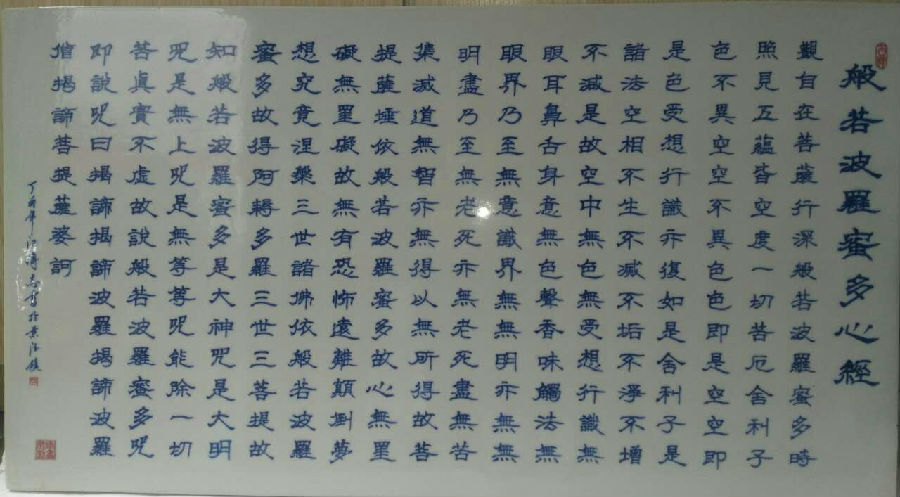 般若波羅蜜多心經
觀自在菩薩行深般若波羅蜜多時
照見五蘊皆空度一切苦厄舍利子
色不異空空不異色色即是空空即
是色受想行識亦復如是舍利子是
諸法空相不生不滅不垢不淨不增
不減是故空中無色無受想行識無
眼耳鼻舌身意無色聲香味觸法無
眼界乃至無意識界無無明亦無無
明盡乃至無老死亦無老死盡無苦
集滅道無智亦無得以無所得故菩
提薩埵依般若波羅蜜多故心無罣
礙無罣礙故無有恐怖遠離顛倒夢
想究竟涅槃三世諸佛依般若波羅
蜜多故得阿耨多羅三世三菩提故
知般若波羅蜜多是大神咒是大明
咒是無上咒是無等等咒能除一切
苦真實不虛故說般若波羅蜜多咒
即說咒曰揭諦揭諦波羅揭諦波羅
僧揭諦菩提薩婆訶
書於景德鎮